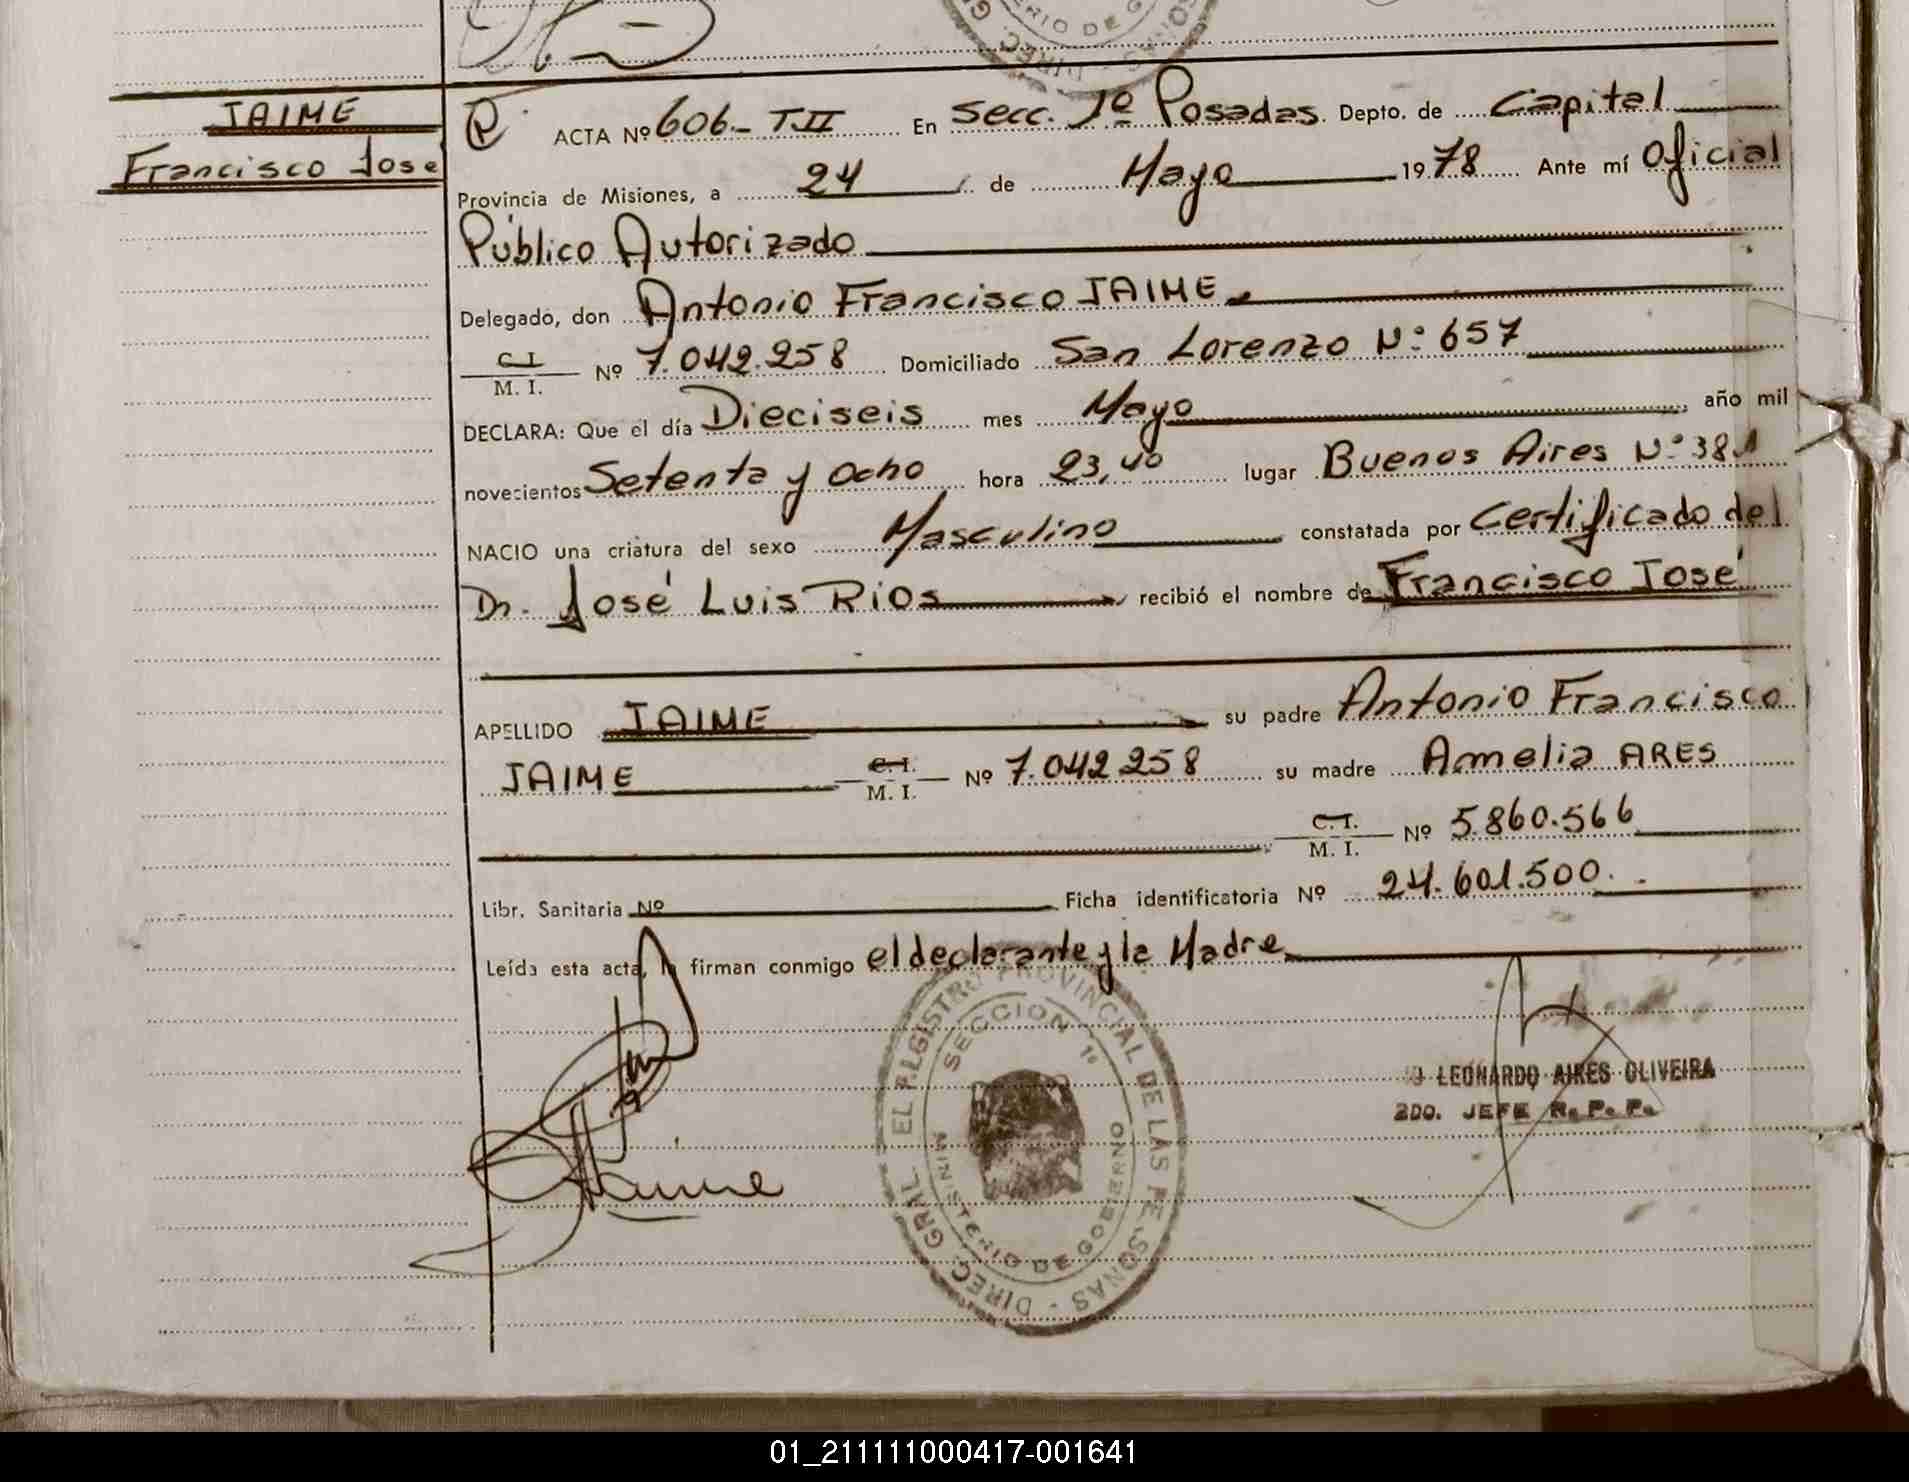 JAIME
Francisco José
ACTA Nº 606.- T.II En Secc. 1º Posadas. Depto. de Capital
Provincia de Misiones, a 24 de Mayo 1978 Ante mí Oficial
Público Autorizado
Delegado, don Antonio Francisco JAIME
C.I.
M. I. Nº 7.042.258 Domiciliado San Lorenzo Nº 657
DECLARA: Que el día Dieciseis mes Mayo año mil
novecientos Setenta y Ocho hora 23,40 lugar Buenos Aires Nº 381
NACIO una criatura del sexo Masculino constatada por Certificado del
Dr. José Luis Rios recibió el nombre de Francisco José
APELLIDO JAIME su padre Antonio Francisco
JAIME C.I. M. I. Nº 7.042258 su madre Amelia ARES
C.I.
M. I. Nº 5.860.566
Libr. Sanitaria Nº Ficha identificatoria Nº 24.601.500.
Leída esta acta, la firman conmigo el declarante y la Madre
DIREC. GRAL. EL REGISTRO PROVINCIAL DE LAS PERSONAS
SECCION 1º
MINISTERIO DE GOBIERNO
LEONARDO AIRES OLIVEIRA
2DO. JEFE R. P. P.
Jaime
01_211111000417-001641